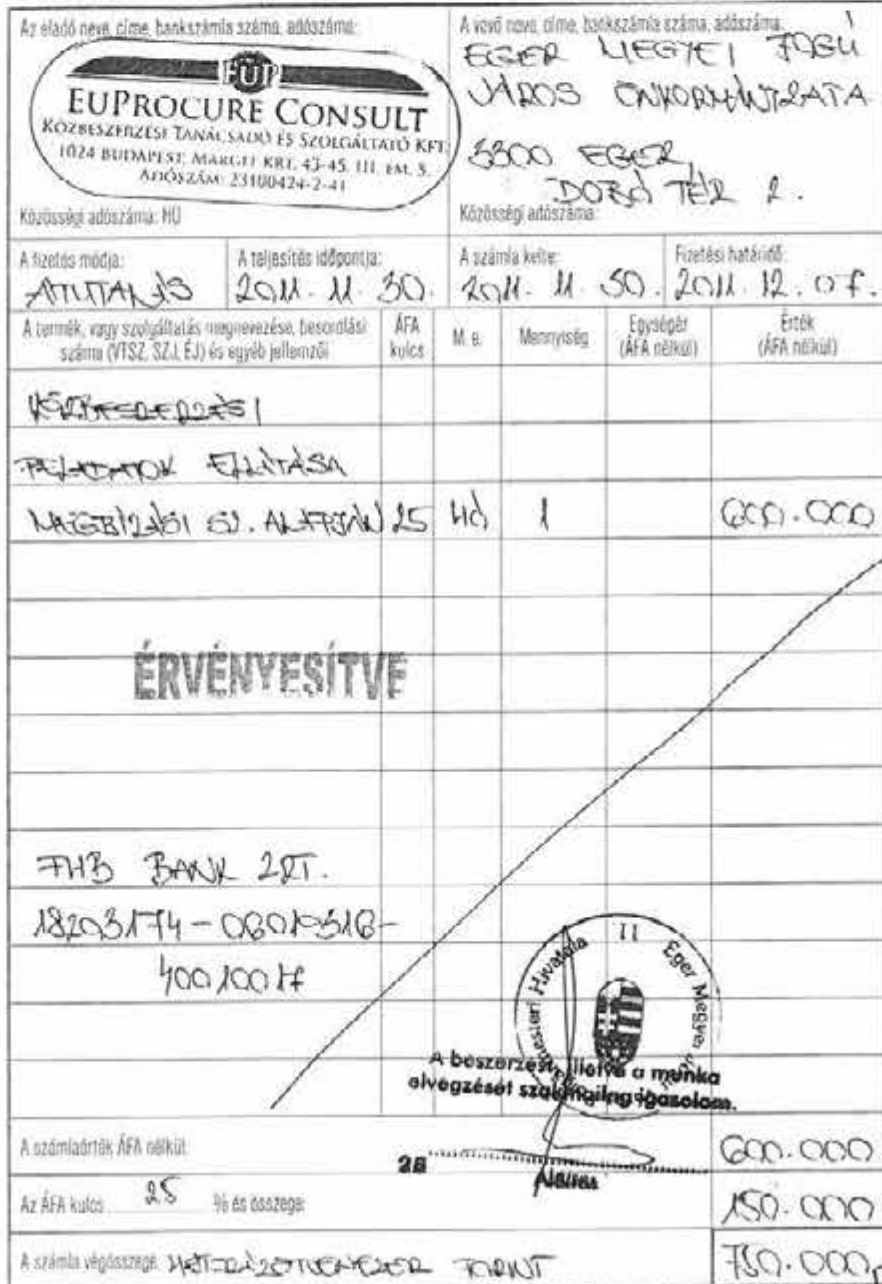 Az eladó neve, címe, bankszámla száma, adószáma:
FÜP
EUPROCURE CONSULT
KÖZBESZERZÉSI TANÁCSADÓ ÉS SZOLGÁLTATÓ KFT.
1024 BUDAPEST, MARGIT KRT. 43-45. III. EM. 5.
ADÓSZÁM: 23100424-2-41
Közösségi adószáma: HU
A vevő neve, címe, bankszámla száma, adószáma:
EGER MEGYEI JOGÚ
VÁROS ÖNKORMÁNYZATA
3300 EGER,
DOBÓ TÉR 2.
Közösségi adószáma:
A fizetés módja:
ÁTUTALÁS
A teljesítés időpontja:
2011. 11. 30.
A számla kelte:
2011. 11. 30.
Fizetési határidő:
2011. 12. 07.
A termék, vagy szolgáltatás megnevezése, besorolási
száma (VTSZ, SZJ, ÉJ) és egyéb jellemzői
ÁFA
kulcs
M. e.
Mennyiség
Egységár
(ÁFA nélkül)
Érték
(ÁFA nélkül)
KÖZBESZERZÉSI
FELADATOK ELLÁTÁSA
MEGBÍZÁSI SZ. ALAPJÁN 25 HÓ 1 600.000
ÉRVÉNYESÍTVE
FHB BANK ZRT.
18203174-06019316-
40010017
II Eger Megyei
A beszerzést, illetve a munka
elvégzését szakmailag igazolom.
Aláírás
A számlaérték ÁFA nélkül: 600.000
28
Az ÁFA kulcs 25 % és összege: 150.000
A számla végösszege: HÉTSZÁZÖTVENEZER FORINT 750.000,